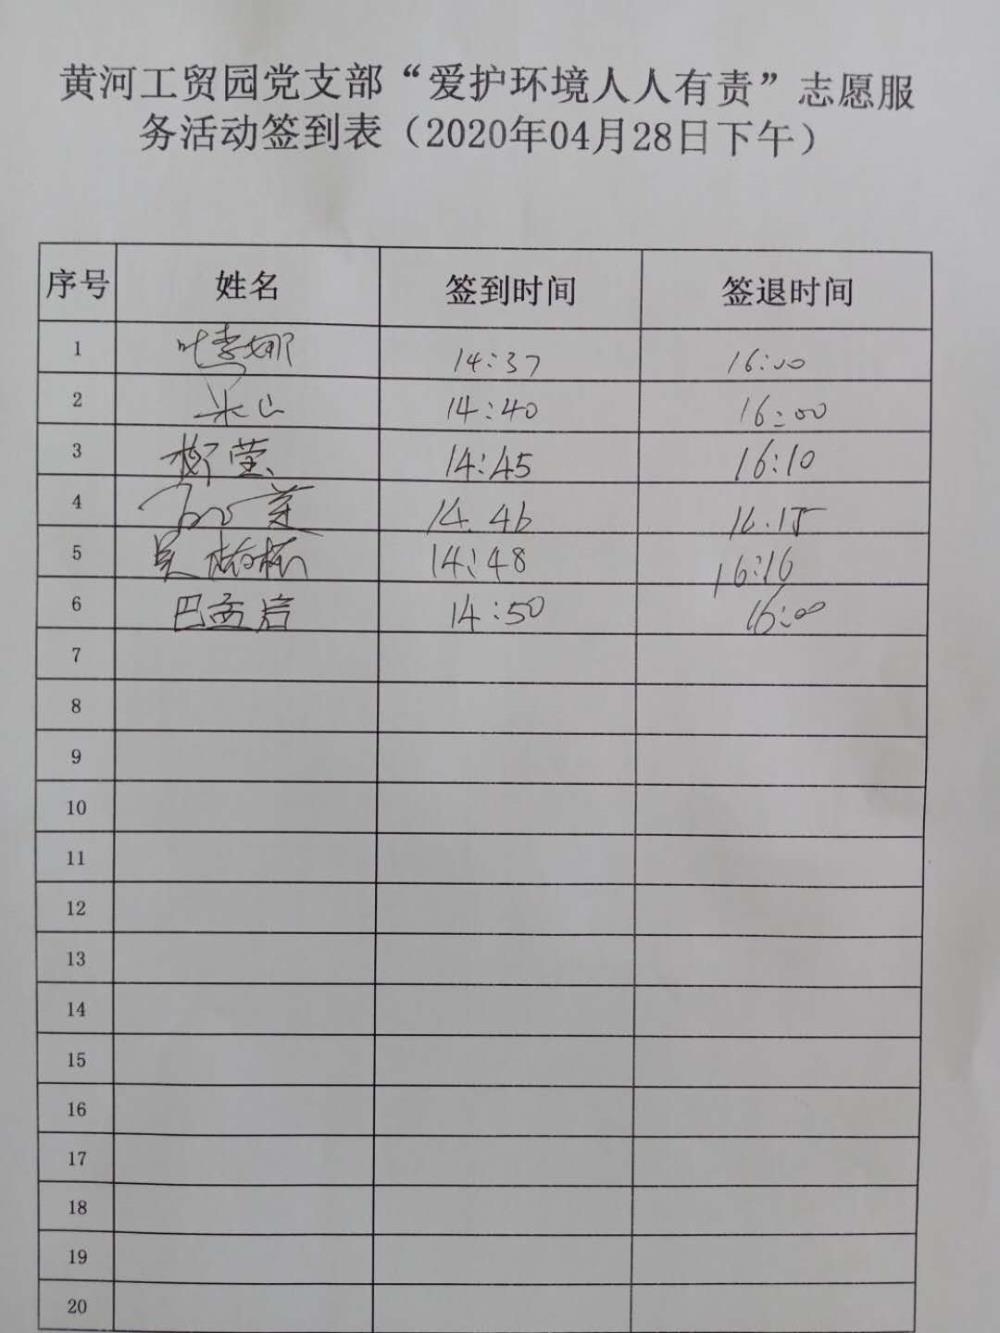 黄河工贸园党支部“爱护环境人人有责”志愿服
务活动签到表（2020年04月28日下午）
序号 姓名 签到时间 签退时间
1 叶李娜 14:37 16:00
2 14:40 16:00
3 柳莹 14:45 16:10
4 14.46 16.15
5 吴 14:48 16:16
6 巴孟岩 14:50 16:00
7
8
9
10
11
12
13
14
15
16
17
18
19
20